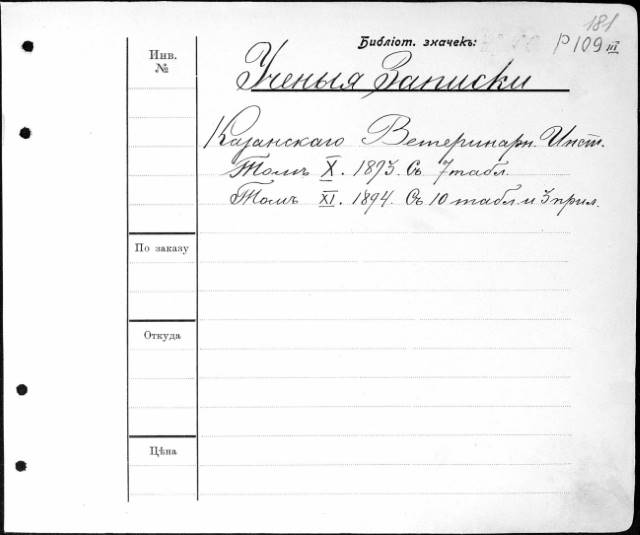 181
Библіот. значекъ: P 109 III
Инв.
№
Ученыя Записки
Казанскаго Ветеринарн. Инст.
Томъ X. 1893. Съ 7 табл.
Томъ XI. 1894. Съ 10 табл. и 3 прил.
По заказу
Откуда
Цѣна